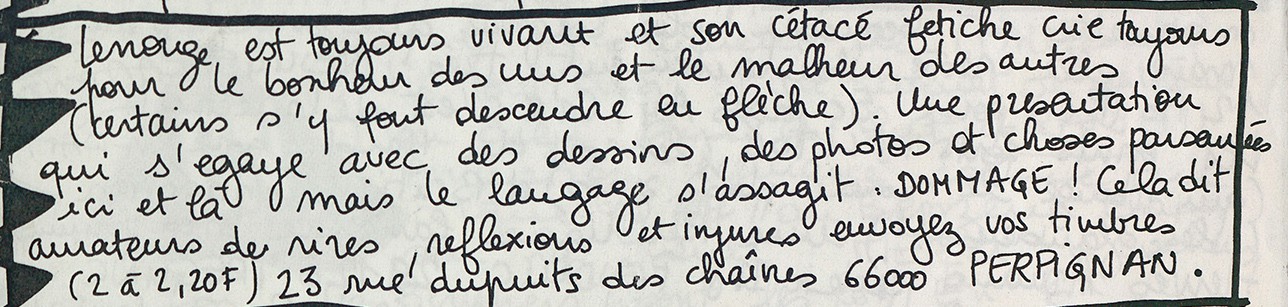 Lenouge est toujours vivant et son cétacé fetiche crie toujours
pour le bonheur des uns et le malheur des autres
(certains s'y font descendre en flèche). Une presentation
qui s'egaye avec des dessins, des photos et choses parsemées
ici et là mais le langage s'assagit. DOMMAGE ! Cela dit
amateurs de rires, reflexions et injures envoyez vos timbres
(2 à 2,20F) 23 rue du puits des chaînes 66000 PERPIGNAN.